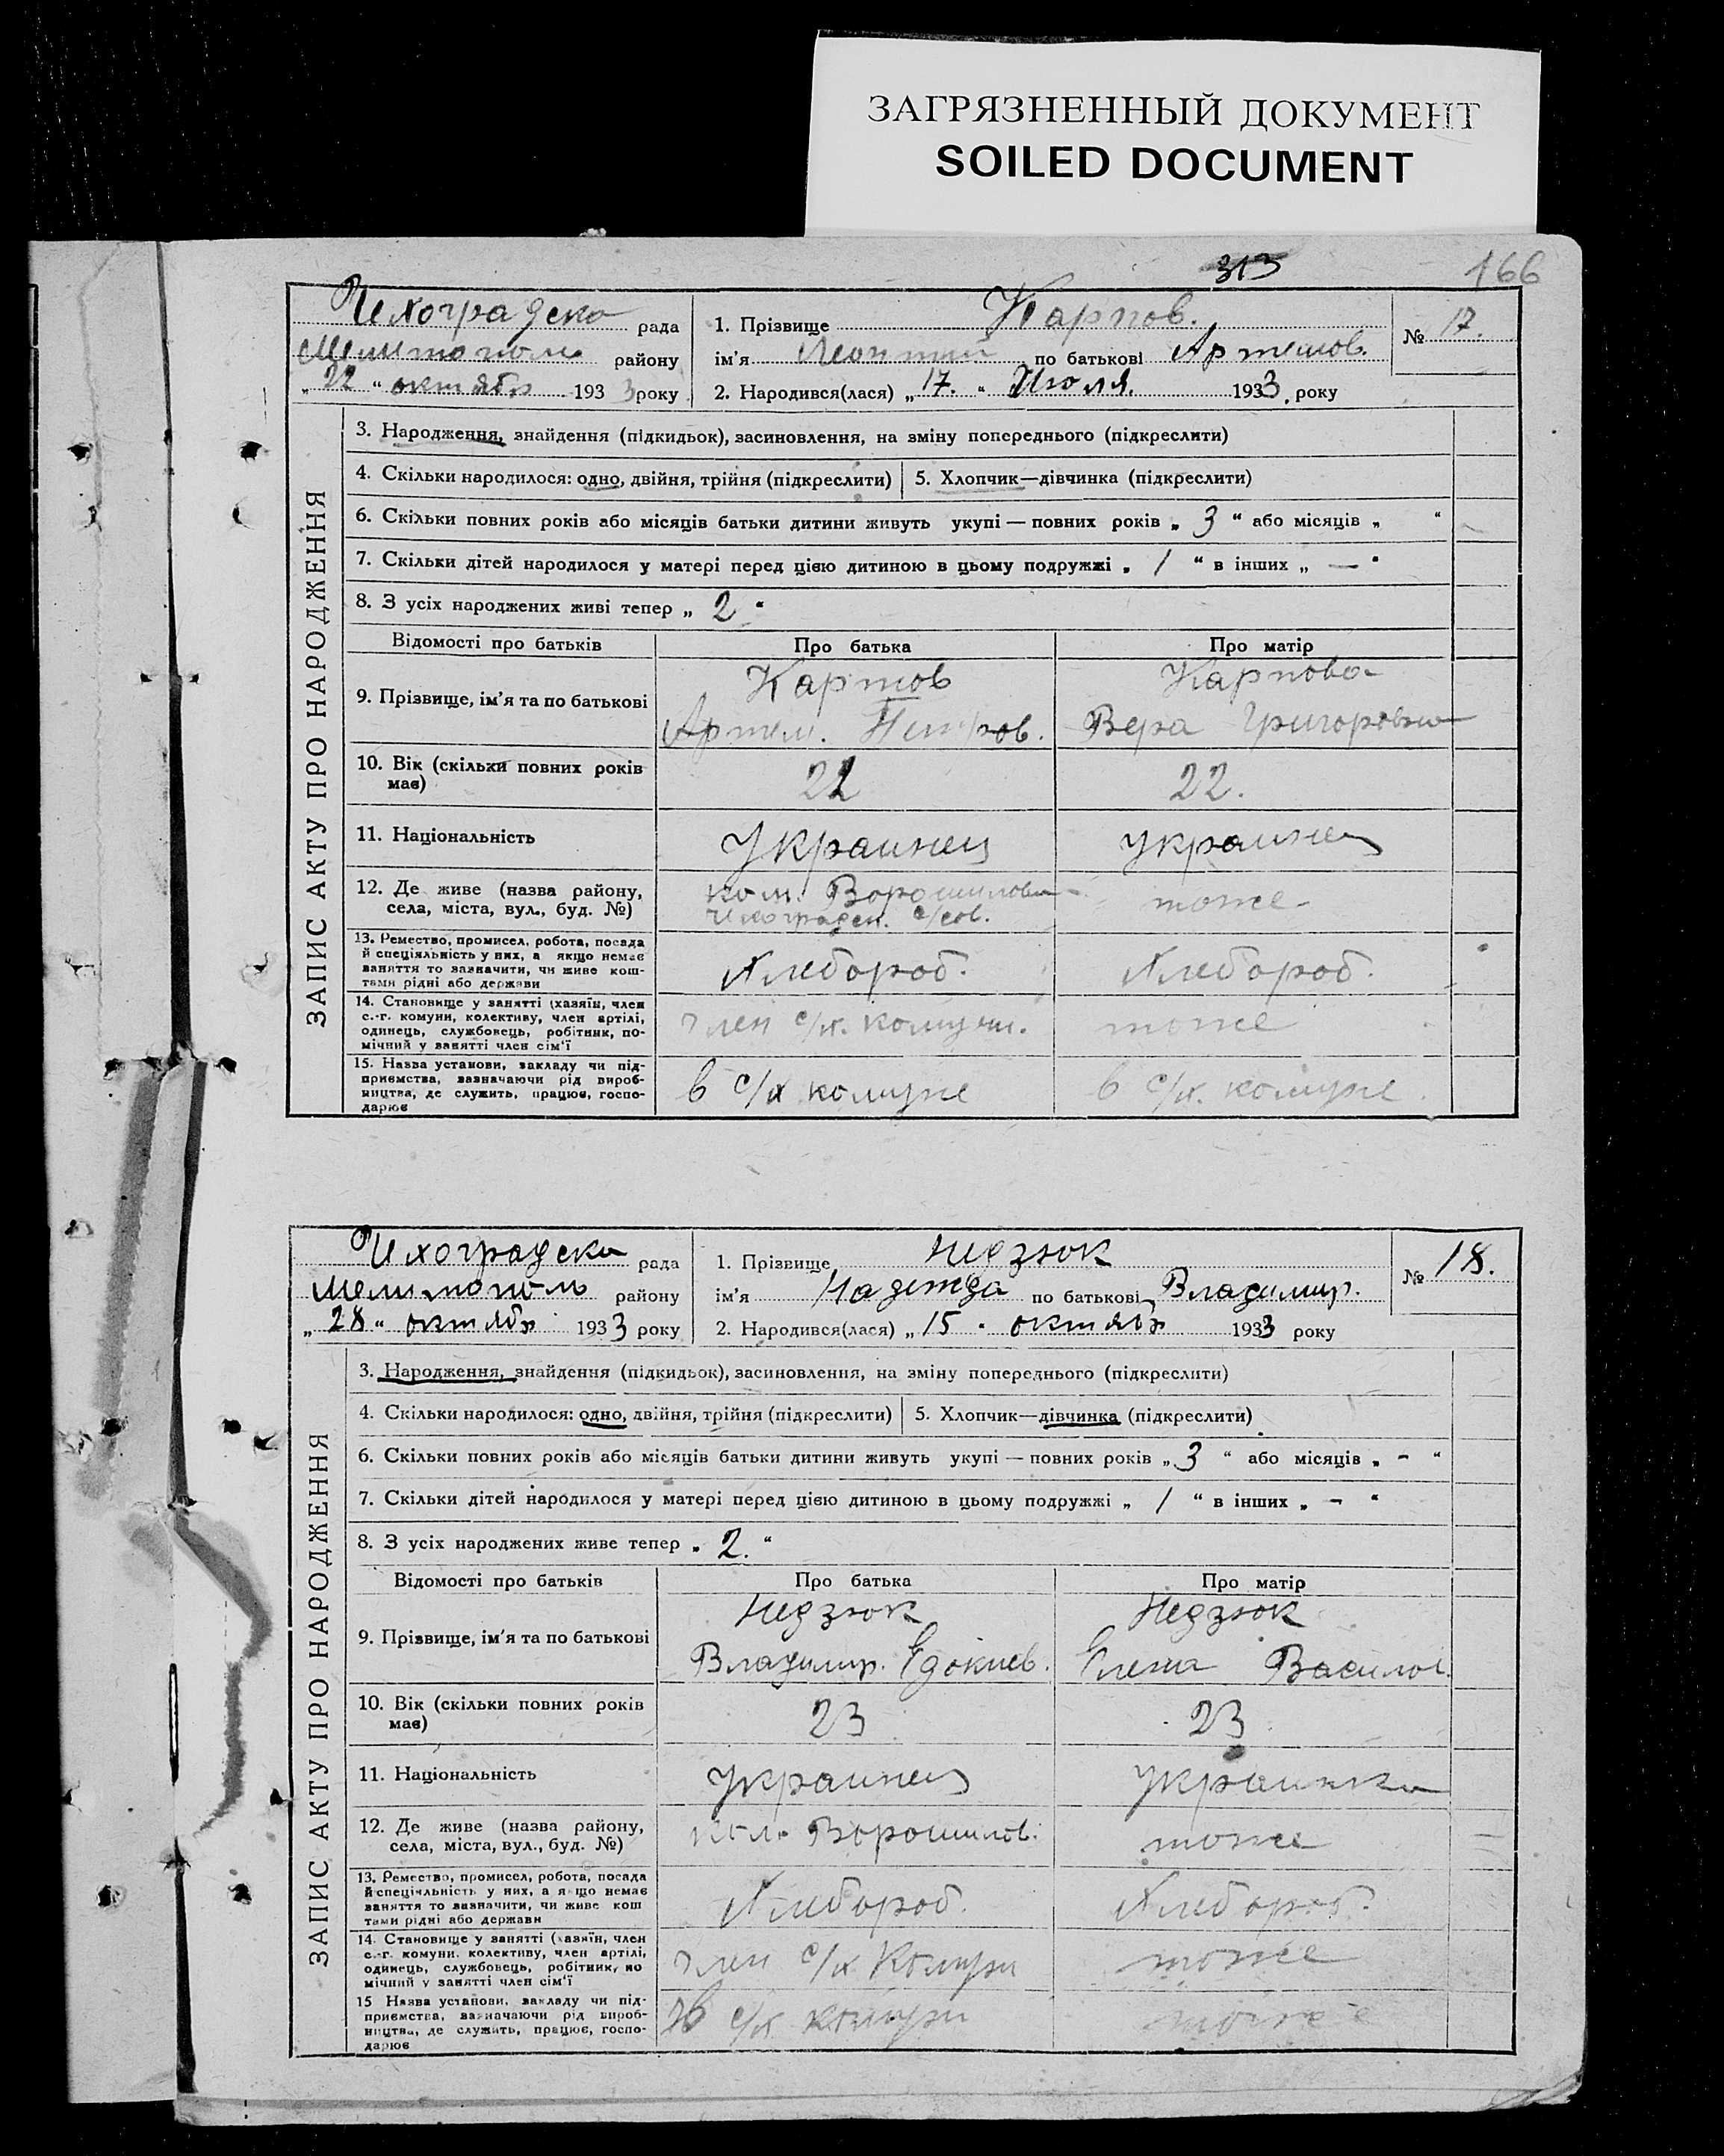 ЗАГРЯЗНЕННЫЙ ДОКУМЕНТ
SOILED DOCUMENT
313
166
Чехоградско рада
Мелитополь району
„ 22 “ октябр 1933 року
1. Прізвище Карпов.
ім’я Леонтий по батькові Артемов.
2. Народився(лася) „ 17. “ Июля. 1933. року
№ 17.
ЗАПИС АКТУ ПРО НАРОДЖЕННЯ
3. Народження, знайдення (підкидьок), засиновлення, на зміну попереднього (підкреслити)
4. Скільки народилося: одно, двійня, трійня (підкреслити)
5. Хлопчик—дівчинка (підкреслити)
6. Скільки повних років або місяців батьки дитини живуть укупі — повних років „ 3 “ або місяців „ “
7. Скільки дітей народилося у матері перед цією дитиною в цьому подружжі „ 1 “ в інших „ — “
8. З усіх народжених живі тепер „ 2 “
Відомості про батьків Про батька Про матір
9. Прізвище, ім’я та по батькові
Карпов
Артем. Петров.
Карпова
Вера Григоровна
10. Вік (скільки повних років має)
22
22.
11. Національність
Украинец
украинец
12. Де живе (назва району,
села, міста, вул., буд. №)
ком. Ворошилова
Чехоградск. с/сов.
тоже
13. Ремество, промисел, робота, посада
й спеціяльність у них, а якщо немає
заняття то зазначити, чи живе кош-
тами рідні або держави
Хлебороб.
Хлебороб.
14. Становище у занятті (хазяїн, член
с.-г. комуни, колективу, член артілі,
одинець, службовець, робітник, по-
мічний у занятті член сім’ї
член с/х. комуни.
тоже
15. Назва установи, закладу чи під-
приємства, зазначаючи рід вироб-
ництва, де служить, працює, госпо-
дарює
в с/х комуне
в с/х. комуне
Чехоградско рада
Мелитополь району
„ 28 “ октябр 1933 року
1. Прізвище Недзюк
ім’я Надежда по батькові Владимир.
2. Народився(лася) „ 15 “ октябр 1933 року
№ 18.
ЗАПИС АКТУ ПРО НАРОДЖЕННЯ
3. Народження, знайдення (підкидьок), засиновлення, на зміну попереднього (підкреслити)
4. Скільки народилося: одно, двійня, трійня (підкреслити)
5. Хлопчик—дівчинка (підкреслити)
6. Скільки повних років або місяців батьки дитини живуть укупі — повних років „ 3 “ або місяців „ - “
7. Скільки дітей народилося у матері перед цією дитиною в цьому подружжі „ 1 “ в інших „ - “
8. З усіх народжених живе тепер „ 2. “
Відомості про батьків Про батька Про матір
9. Прізвище, ім’я та по батькові
Недзюк
Владимир.
Недзюк
Елена Василов.
10. Вік (скільки повних років має)
23
23
11. Національність
украинец
украинка
12. Де живе (назва району,
села, міста, вул., буд. №)
ком. Ворошилов.
тоже
13. Ремество, промисел, робота, посада
й спеціяльність у них, а якщо немає
заняття то зазначити, чи живе кош
тами рідні або держави
Хлебороб.
Хлебороб.
14. Становище у занятті (хазяїн, член
с.-г. комуни, колективу, член артілі,
одинець, службовець, робітник, по
мічний у занятті член сім’ї
член с/х Комуни
тоже
15 Назва установи, закладу чи під-
приємства, зазначаючи рід вироб-
ництва, де служить, працює, госпо-
дарює
в с/х комуни
тоже